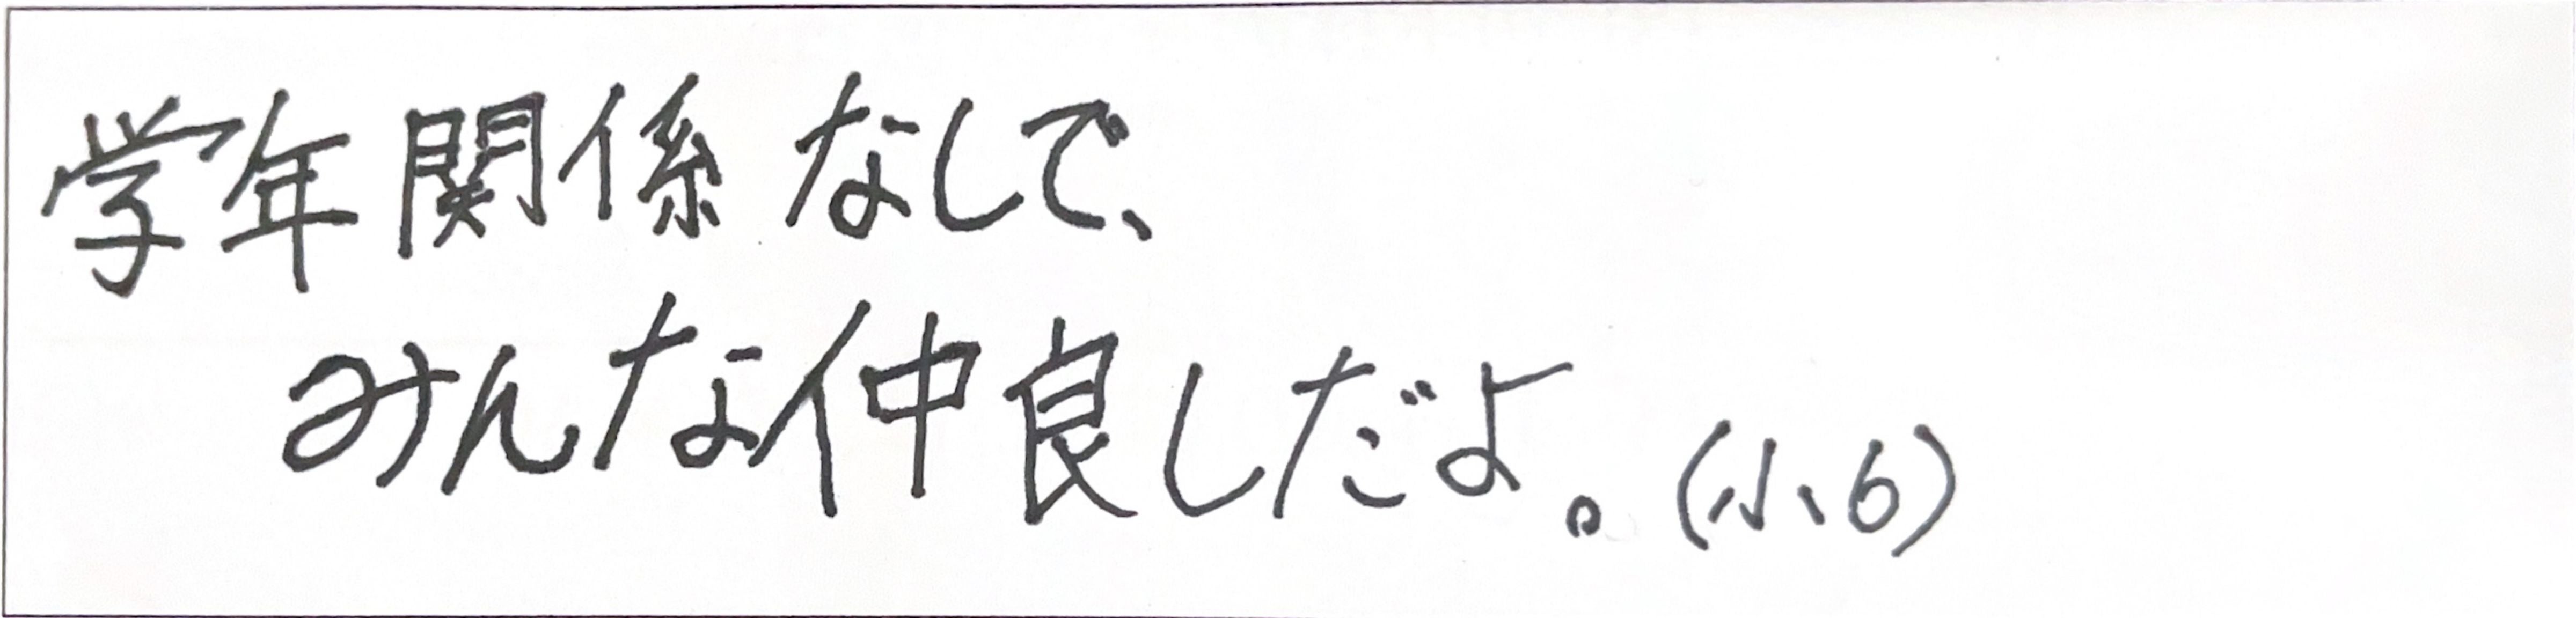 学年関係なしで、
みんな仲良しだよ。(小6)